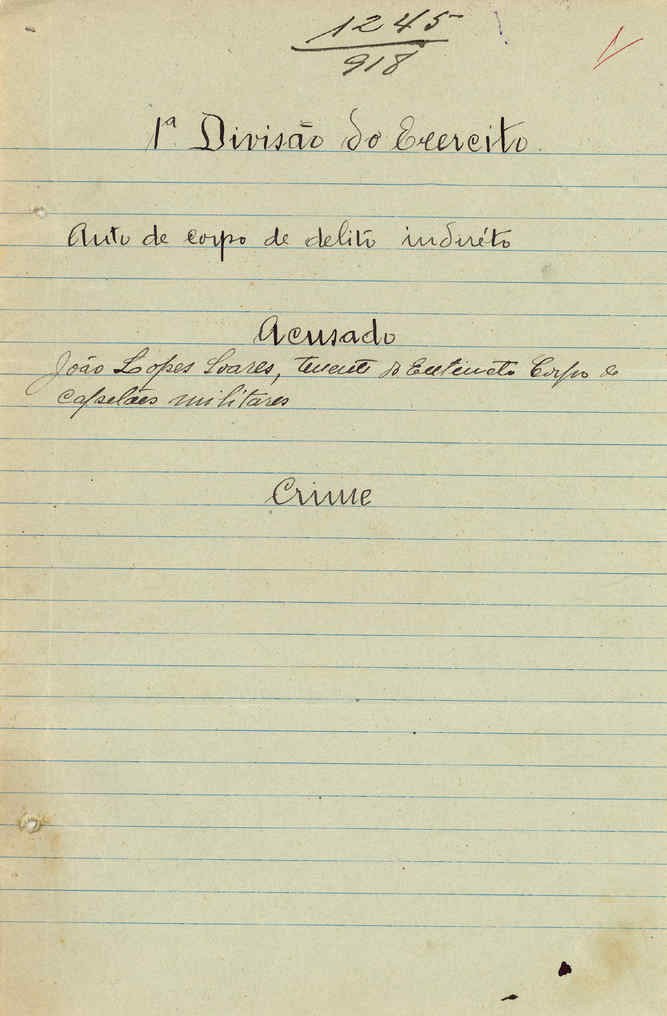 1245
918
1ª Divisão do Exercito
Auto de corpo de delito indiréto
Acusado
João Lopes Soares, tenente do Extincto Corpo de
capelães militares
Crime